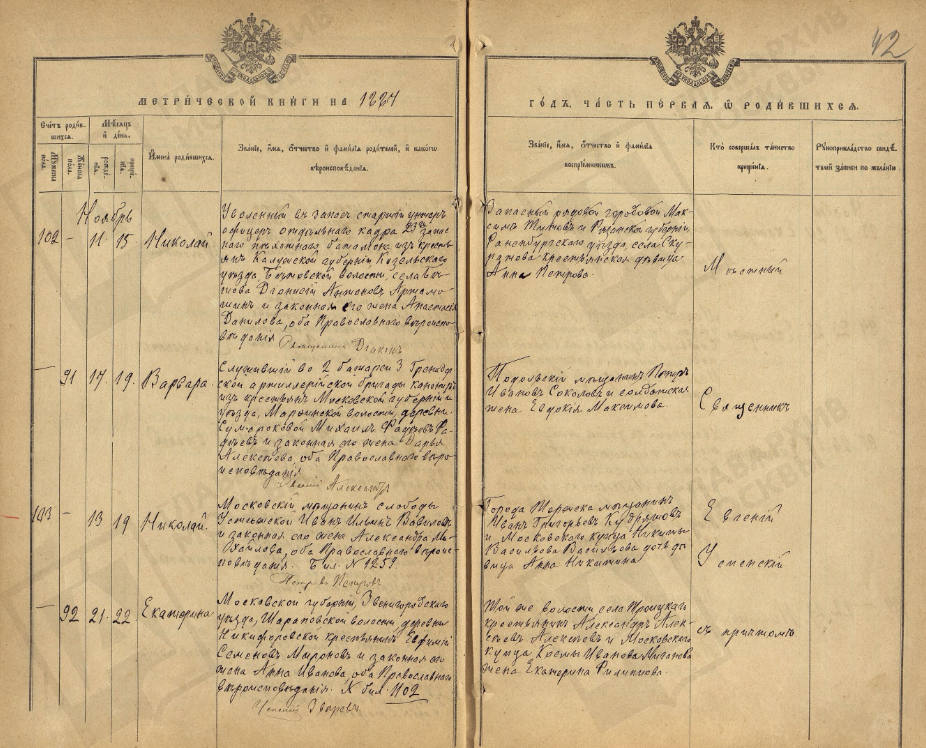 42
МЕТРИЧЕСКОЙ КНИГИ НА 1884
ГОДЪ, ЧАСТЬ ПЕРВАЯ, Ѡ РОДИВШИХСЯ.
Счетъ родив-
шихся.
Мѣсяцъ
и день.
Мужска
пола.
Женска
пола.
рожде-
нія.
креще-
нія.
Имена родившихся.
Званіе, имя, отчество и фамилія родителей, и какого
вѣроисповѣданія.
Званіе, имя, отчество и фамилія
воспріемниковъ.
Кто совершалъ таинство
крещенія.
Рукоприкладство свидѣ-
телей записи по желанію
Ноябрь
102 – 11 15 Николай
Уволенный въ запасъ старшій унтеръ
офицеръ отдѣльнаго кадра 23го запас
наго пѣхотнаго баталіона изъ кресть-
янъ Калужской губерніи Козельскаго
уѣзда
волости, села
Діонисій Антоновъ
и законная его жена Анастасія
Данилова, оба Православнаго вѣроиспо-
вѣданія
Запасный рядовой городовой Мак-
симъ и Рязанской губерніи
Раненбургскаго уѣзда, села
крестьянская дѣвица
Анна Петрова.
Мѣстный
– 91 17 19 Варвара
Служившій во 2 батареи 3 Гренадер
ской артиллерійской бригады канониръ
изъ крестьянъ Московской губерніи и
уѣзда, волости, деревни
Сумароковой Михаилъ
и законная его жена Дарья
Алексѣева, оба Православнаго вѣро-
исповѣданія
Подольскій мѣщанинъ Петръ
Ивановъ Соколовъ и солдатская
жена Евдокія Максимова
Священникъ
103 – 13 19 Николай.
Московскій мѣщанинъ слободы
Иванъ Ильинъ Вавиловъ
и законная его жена Александра Ми-
хайлова, оба Православнаго вѣроис-
повѣданія. Бил. N 1259
Города мѣщанинъ
Иванъ Григорьевъ Кудряшовъ
и Московскаго купца Никиты
Васильева Васильева дочь дѣ-
вица Анна Никитина
Евгеній
Успенскій
– 92 21 22 Екатерина
Московской губерніи, Звенигородскаго
уѣзда, Шараповской волости деревни
Никифоровской крестьянинъ Евфимій
Семеновъ Мироновъ и законная его
жена Анна Иванова, оба Православнаго
вѣроисповѣданія. N бил. 1102
Той же волости села Троицкаго
крестьянинъ Александръ Алек-
сѣевъ Алексѣевъ и Московскаго
купца Косьмы Иванова
жена Екатерина Филиппова.
съ причтомъ